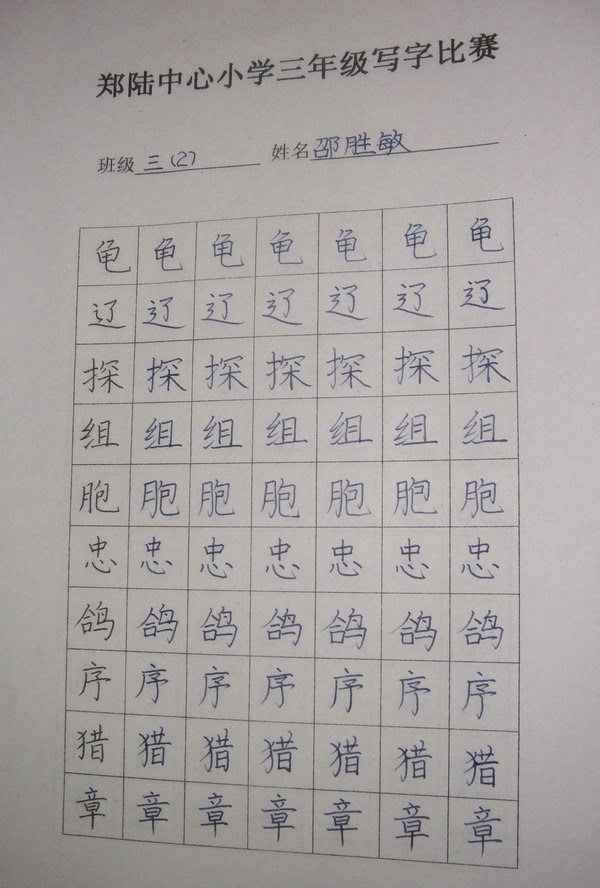 郑陆中心小学三年级写字比赛
班级 三(2) 姓名 邵胜敏
龟 龟 龟 龟 龟 龟 龟
辽 辽 辽 辽 辽 辽 辽
探 探 探 探 探 探 探
组 组 组 组 组 组 组
胞 胞 胞 胞 胞 胞 胞
忠 忠 忠 忠 忠 忠 忠
鸽 鸽 鸽 鸽 鸽 鸽 鸽
序 序 序 序 序 序 序
猎 猎 猎 猎 猎 猎 猎
章 章 章 章 章 章 章